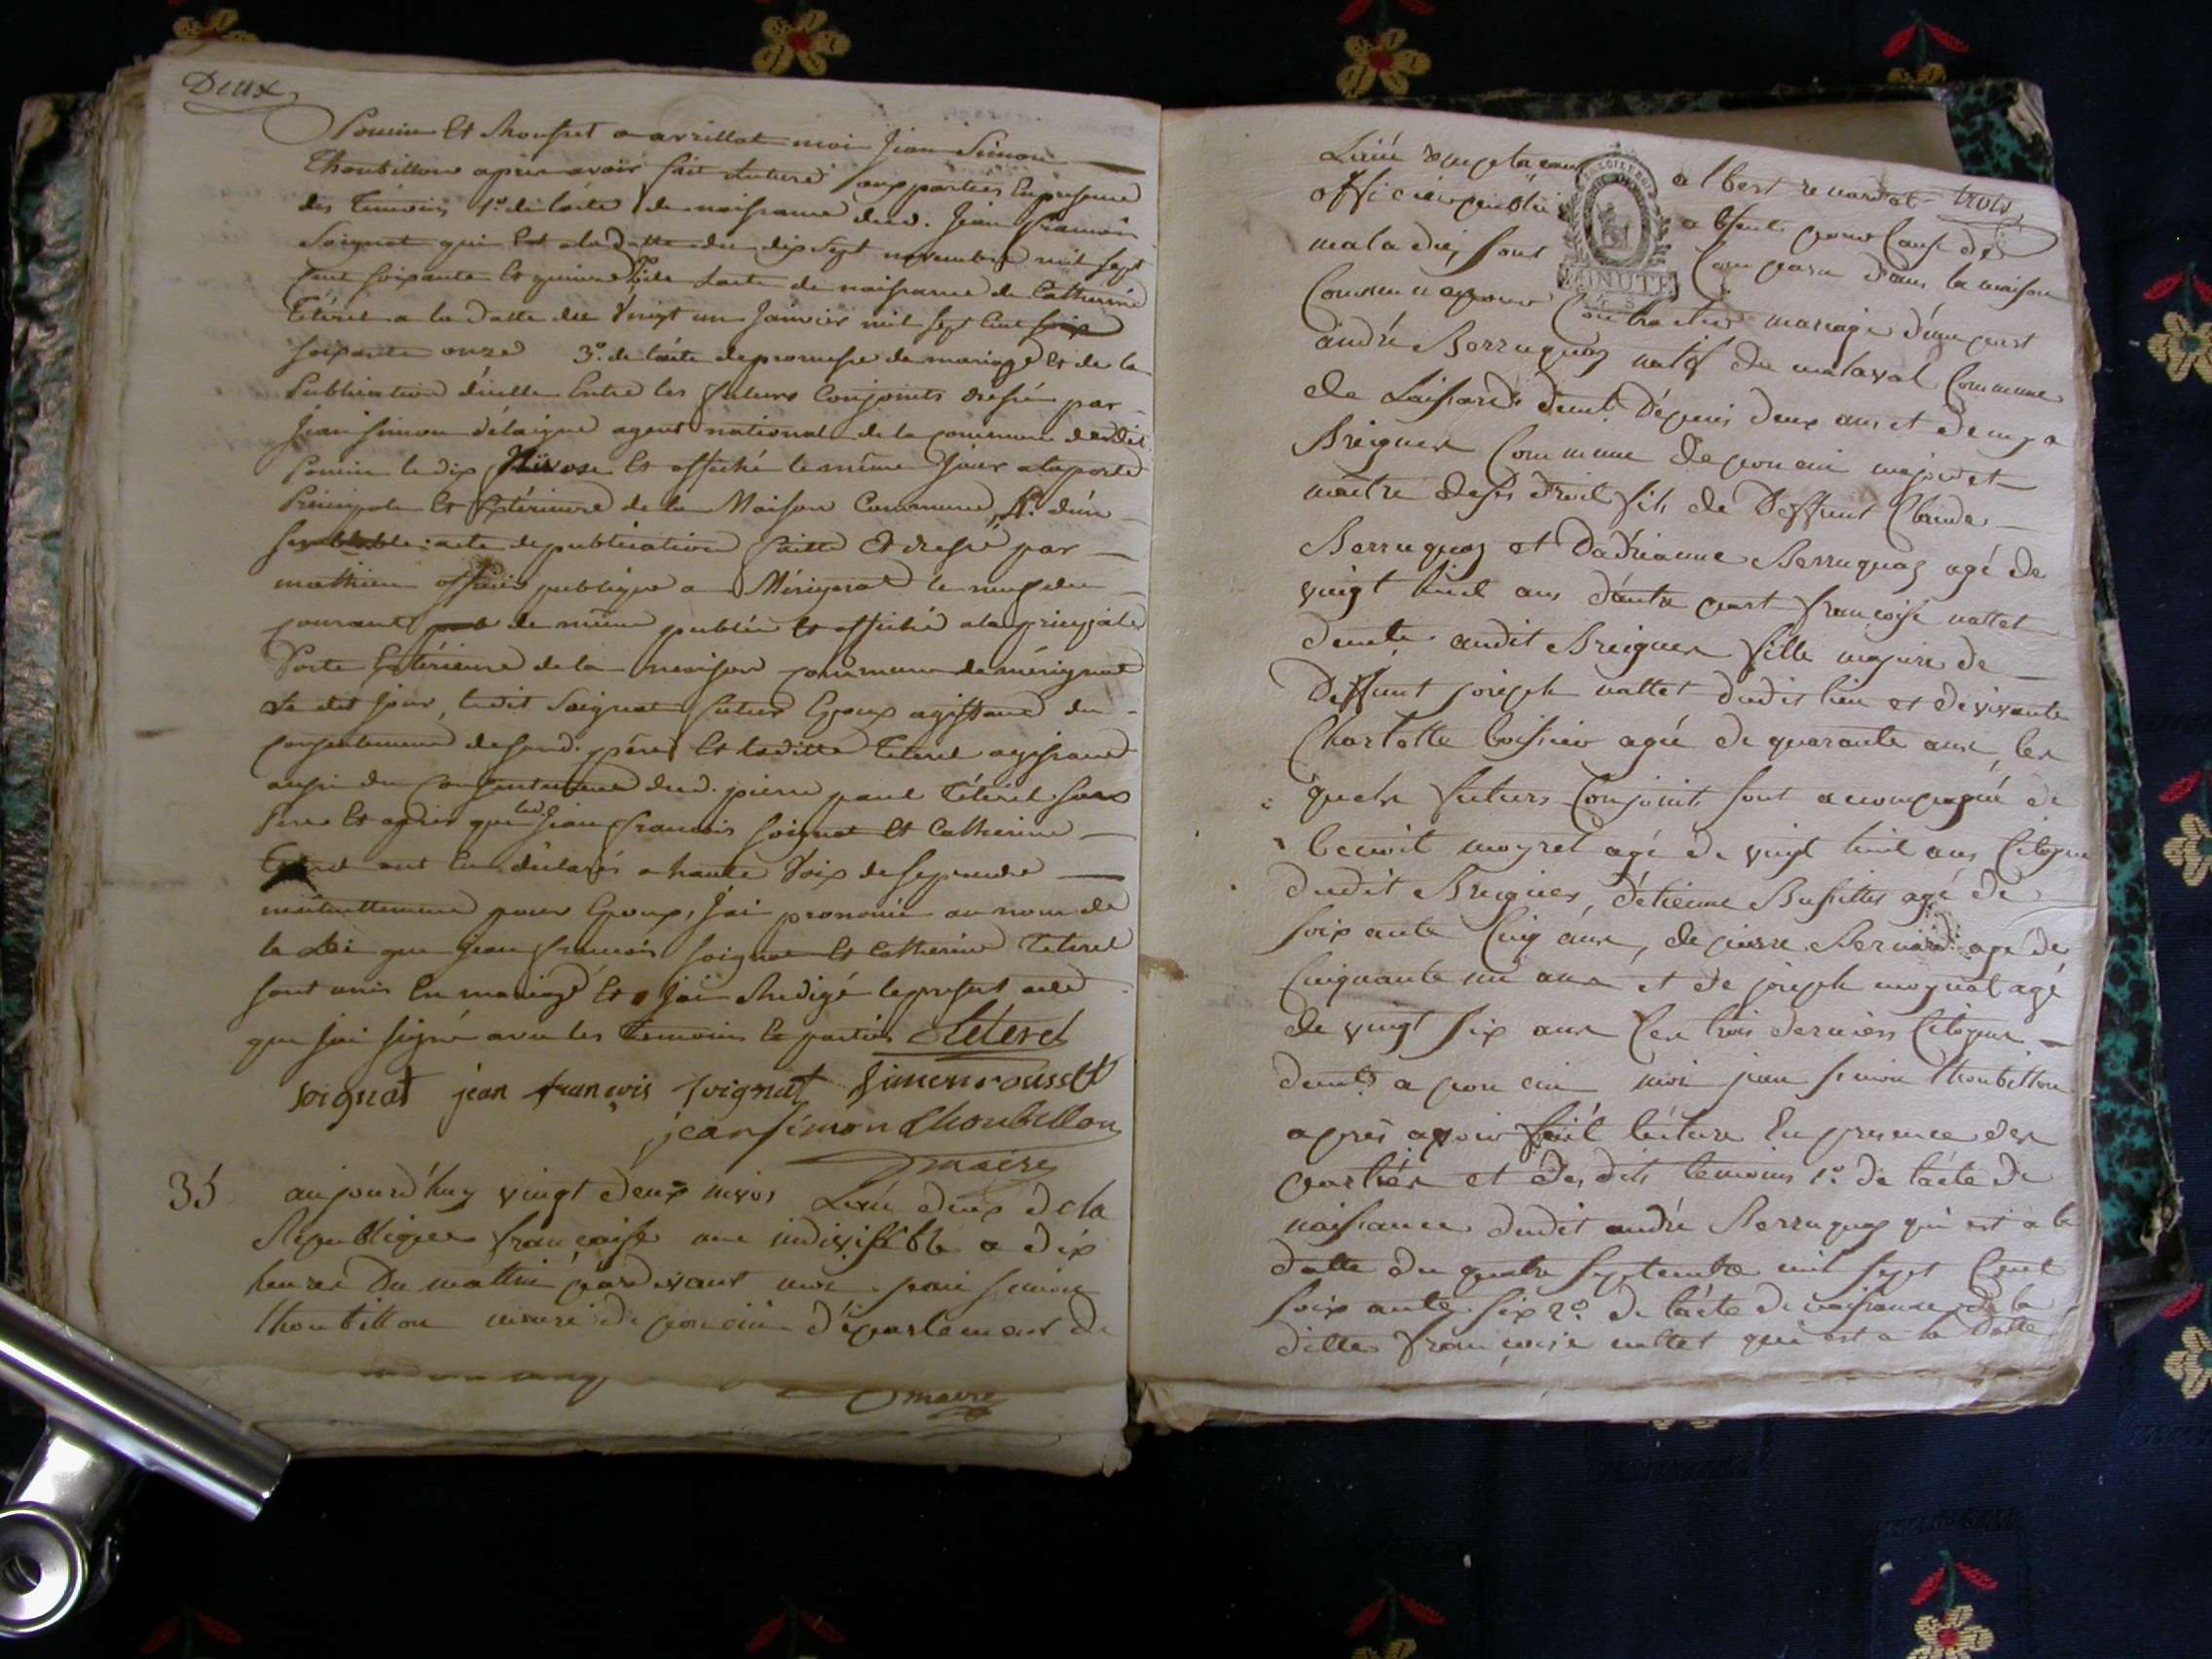 Deux
Poncin Et Rousset a arrillat moi Jean Simon
Thoubillon après avoir fait lecture aux parties En presence
des Témoins 1º. de lácte de naissance dud. Jean françois
Soignat qui Est a la Datte du dix sept novembre mil sept
Cent soixante Et quinze 2º de Lacte de naissance de Catherine
Téterel a la Datte du Vingt un Janvier mil sept Cent soix
soixante onze 3º. de lácte de promesse de mariage Et de la
Publication d'icelle Entre les futurs Conjoints dréssé par
Jean simon délaigue agent national de la commune dudit
Poncin le dix Nivose Et affiché le même Jour a la porte
Principale Et Extérieure de la Maison Commune, 4º. d'un
semblable acte de publication faitte Et dressé par
mathieu officier publique a Mérignat le neuf du
courant de même publié Et affiché a la principale
Porte Extérieure de la maison commune de mérignat
Le dit Jour, ledit Soignat futur Epoux agissant du
consentement de sond. père Et laditte Teterel agissant
aussi du Consentement dud. pierre paul Téterel son
Pere Et après que led. Jean francois soignat Et Catherine
Teterel ont Eu déclarés a haute Voix de se prendre
mutuellement pour Epoux, J'ai prononcé au nom de
la Loi que Jean francois soignat Et Catherine Teterel
sont unis En mariage Et Jai Redigé le present acte
que Jai signé avec les Temoins Et parties Leterel
soignat jean françois soignat Simon rousset
jean simon thoubillon
maire
35 aujourd'huy vingt deux nivos Lané deux de la
Republique française une indivisible a dix
heures Du mattin pardevant moi jean simon
thoubillon maire de poncin département de
maire
Lain remplaçant albert renard at trois
officier public absent pour Cause de
maladie, sont Comparu dans la maison
MINUTE
Commune pour Contracter mariage d'une part
andré Berruquaz natif du malaval Commune
de Laissard demt. Dépuis deux ans et demy a
Breignes Commune de poncin majeur et
maitre de ses droit fils de Deffunt Claude
Berruquaz et Dadrianne Berruquaz agé de
vingt huit ans d'autre part françoise nallet
demte. audit Breignes fille majure de
Deffunt joseph nallet dudit lieu et de vivante
Charlotte boissier agée de quarante ans, les
quels futurs Conjoints sont acompagné de
benoit moyret agé de vingt huit ans Citoyen
dudit Breignes, détienne Bussillet agé de
soix ante Cinq ans, de pierre Bernard agé de
Cinquante un ans et de joseph moynat agé
de vingt six ans les trois derniers Citoyens
demts a pon cin moi jean simon thoubillon
apprès avoir fait lécture En presence des
parties et des dits temoins 1º. de lácte de
naissance dudit andré Berruquaz qui est a la
datte du quatre septembre mil sept Cent
soix ante six 2º. de lácte de naissance de la
ditte françoise nallet qui est a la Datte